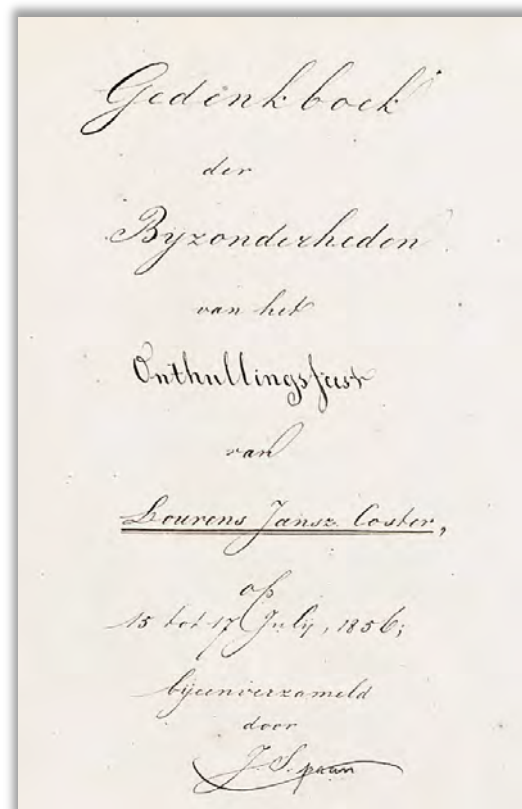 Gedenkboek
der
Byzonderheden
van het
Onthullingsfeest
van
Lourens Jansz. Coster,
op
15 tot 17 July, 1856;
bijeenverzameld
door
J. Spaan